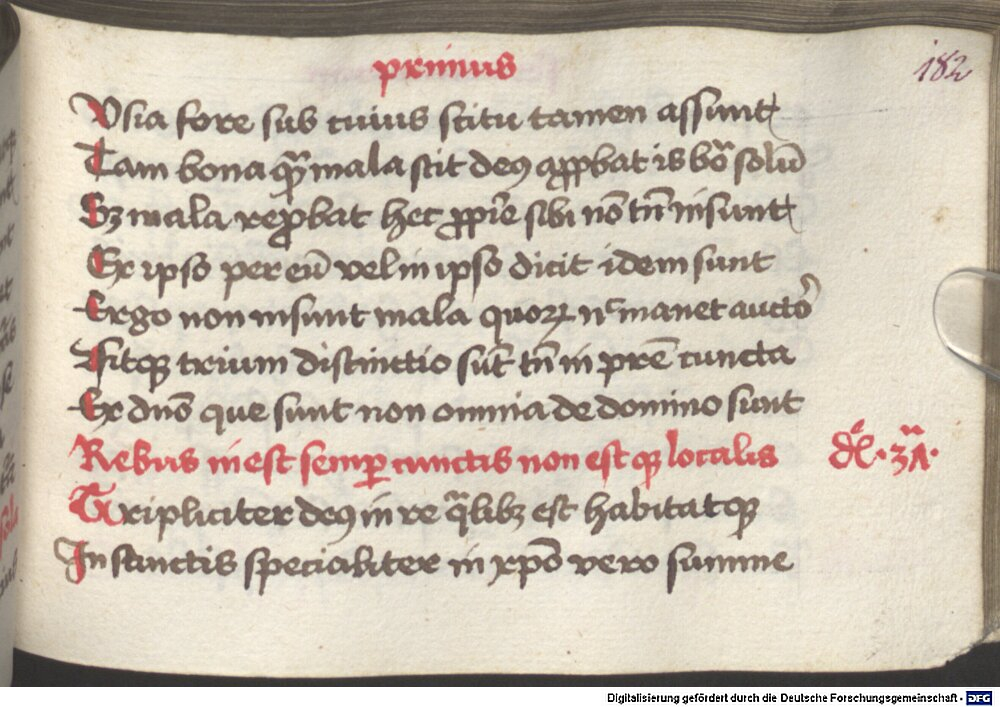 primus
182
Vsia fore sub cuius scitu tamen assunt
Tam bona qͣ mala scit deꝰ appbat is boͣ solū
Sz mala repbat hec ppͥe sibi nō tn̄ insunt
Ex ipso per eū vel in ipso dicit idem sunt
Ergo non insunt mala quoꝝ nͨ manet auctoꝛ
Sitqꝫ trium distinctio sūt tn̄ in pr̄e cuncta
Ex dn̄o que sunt non omnia de domino sunt
Rebus inest semꝑ cunctis non est qꝫ localis
37ͣ
Tripliciter deꝰ in re qͣlibꝫ est habitatqꝫ
In sanctis specialiter in xp̄o vero summe
Digitalisierung gefördert durch die Deutsche Forschungsgemeinschaft - DFG